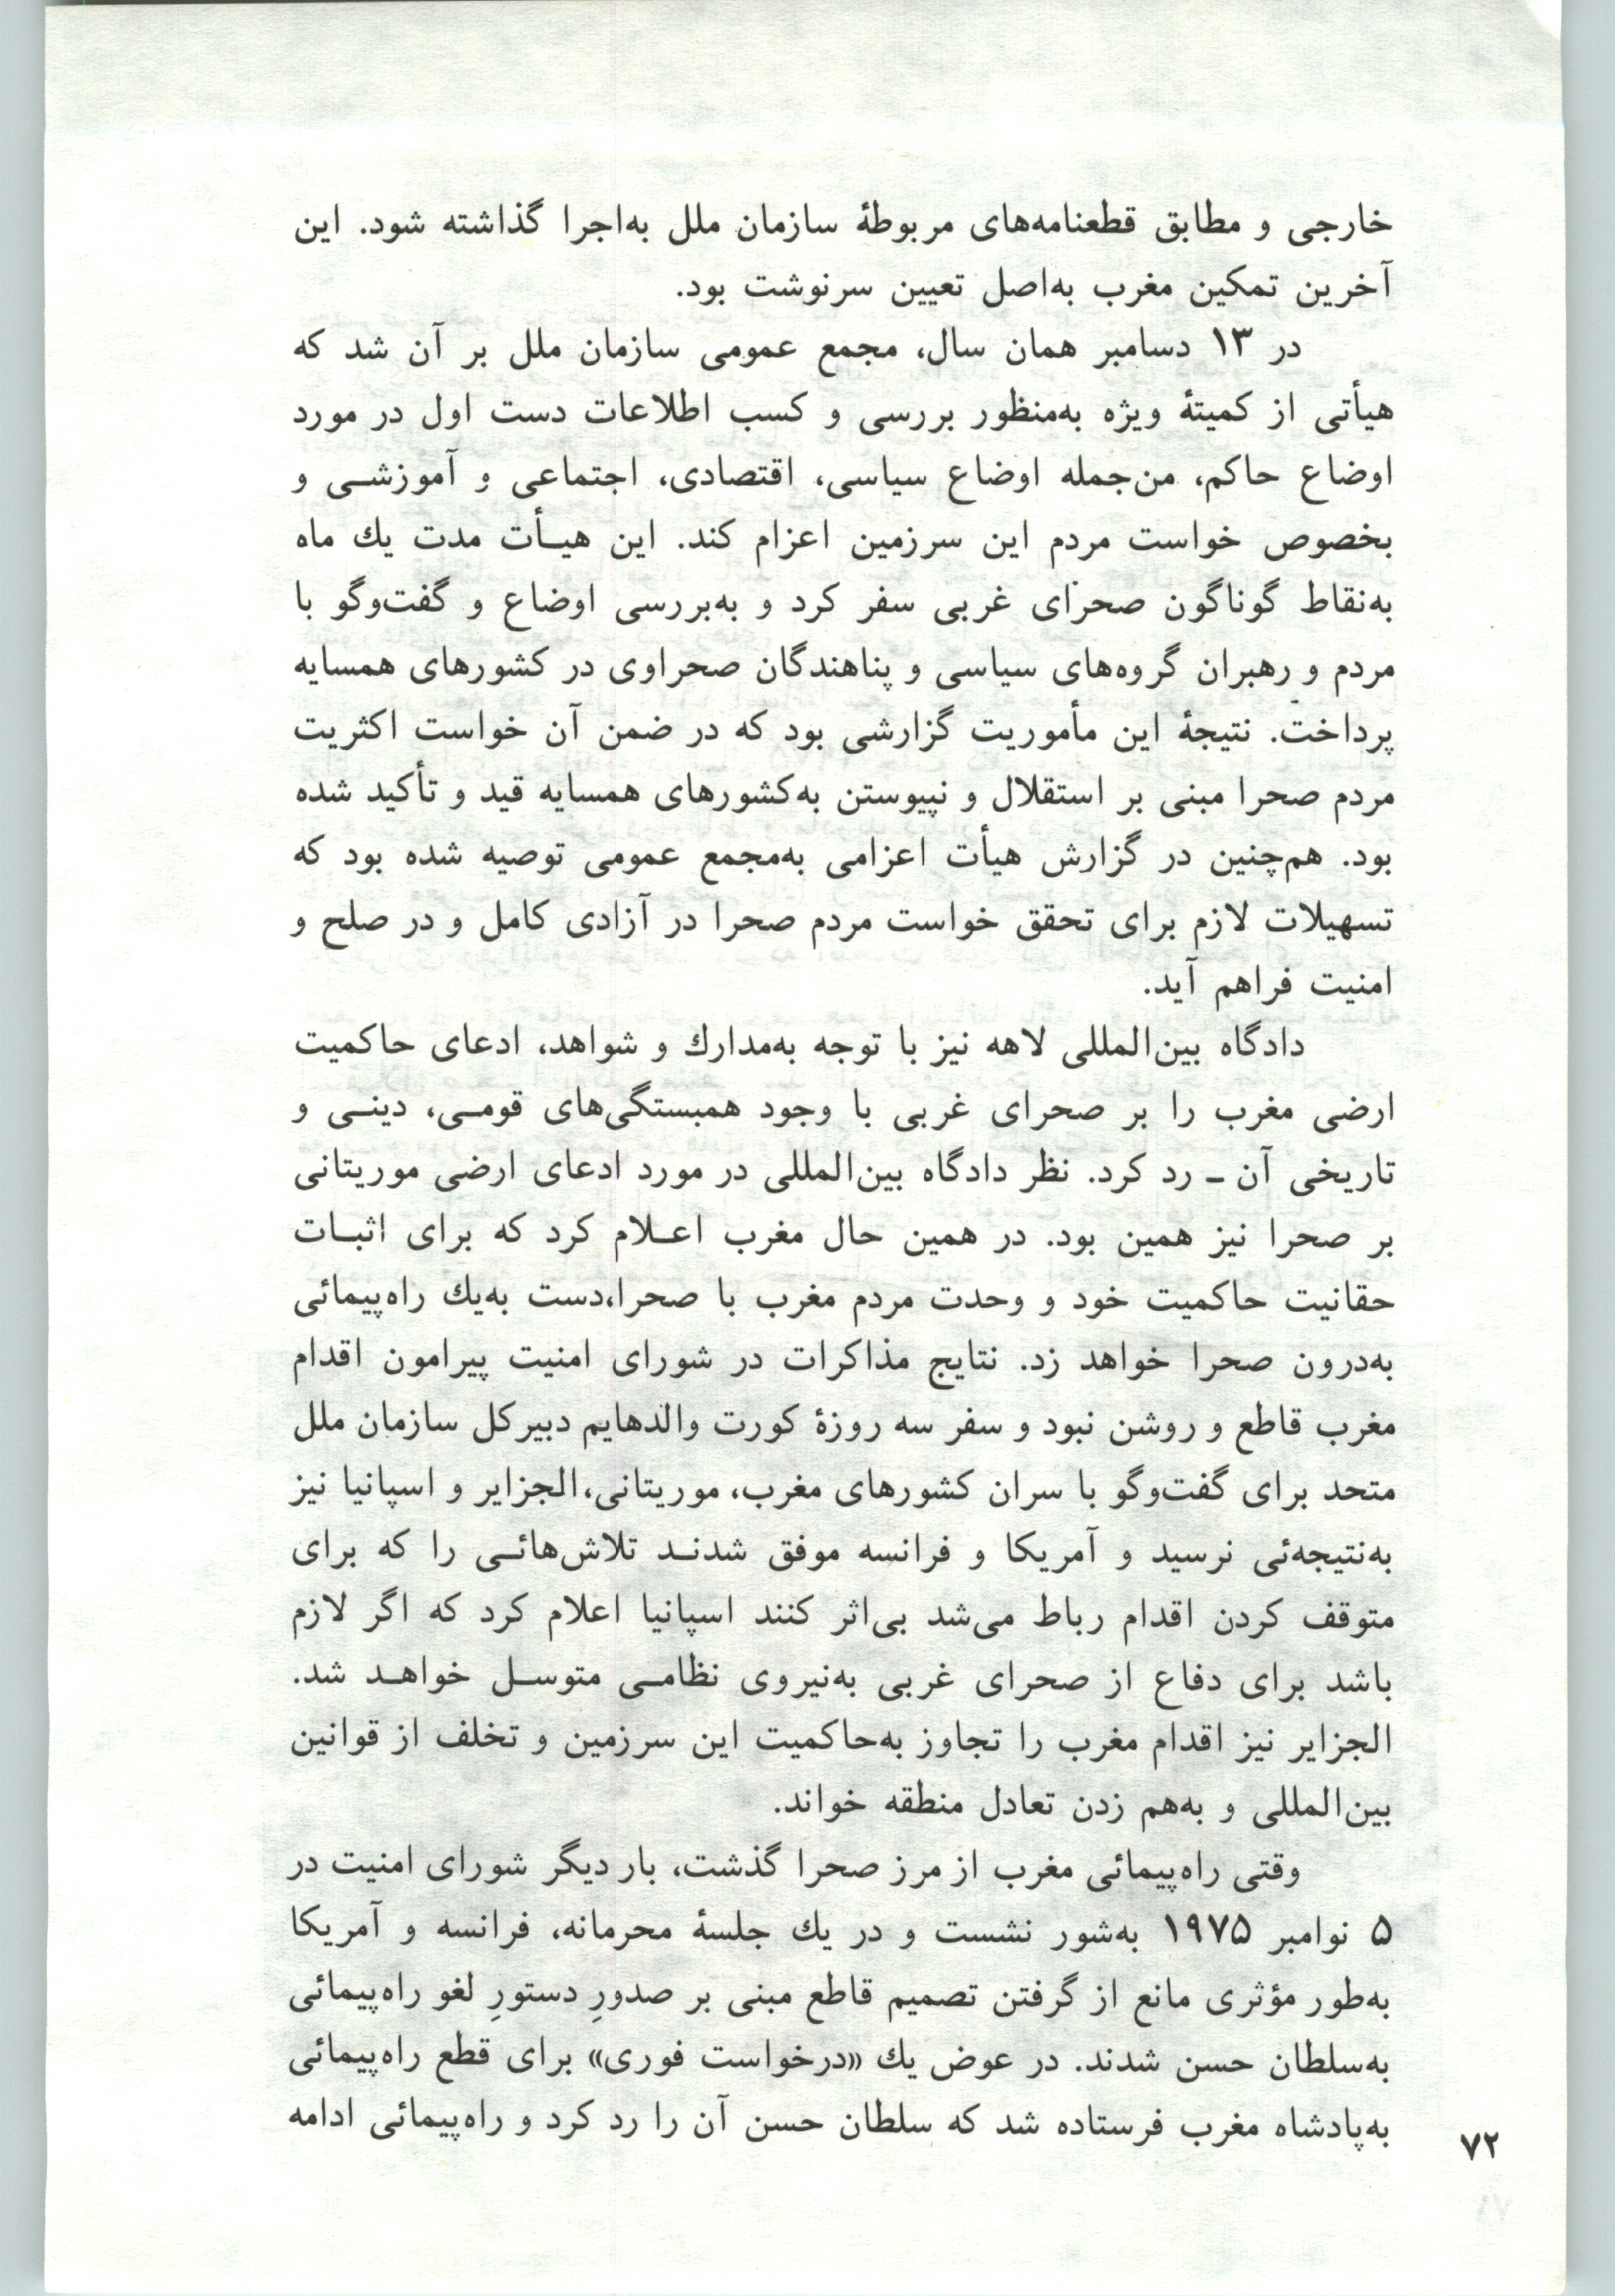 خارجی و مطابق قطعنامه‌های مربوطهٔ سازمان ملل به‌اجرا گذاشته شود. این
آخرین تمکین مغرب به‌اصل تعیین سرنوشت بود.
در ۱۳ دسامبر همان سال، مجمع عمومی سازمان ملل بر آن شد که
هیأتی از کمیتهٔ ویژه به‌منظور بررسی و کسب اطلاعات دست اول در مورد
اوضاع حاکم، من‌جمله اوضاع سیاسی، اقتصادی، اجتماعی و آموزشـی و
بخصوص خواست مردم این سرزمین اعزام کند. این هیـأت مدت یك ماه
به‌نقاط گوناگون صحرای غربی سفر کرد و به‌بررسی اوضاع و گفت‌وگو با
مردم و رهبران گروه‌های سیاسی و پناهندگان صحراوی در کشورهای همسایه
پرداخت. نتیجهٔ این مأموریت گزارشی بود که در ضمن آن خواست اکثریت
مردم صحرا مبنی بر استقلال و نپیوستن به‌کشورهای همسایه قید و تأکید شده
بود. هم‌چنین در گزارش هیأت اعزامی به‌مجمع عمومی توصیه شده بود که
تسهیلات لازم برای تحقق خواست مردم صحرا در آزادی کامل و در صلح و
امنیت فراهم آید.
دادگاه بین‌المللی لاهه نیز با توجه به‌مدارك و شواهد، ادعای حاکمیت
ارضی مغرب را بر صحرای غربی با وجود همبستگی‌های قومـی، دینـی و
تاریخی آن ـ رد کرد. نظر دادگاه بین‌المللی در مورد ادعای ارضی موریتانی
بر صحرا نیز همین بود. در همین حال مغرب اعـلام کرد که برای اثبـات
حقانیت حاکمیت خود و وحدت مردم مغرب با صحرا،دست به‌یك راه‌پیمائی
به‌درون صحرا خواهد زد. نتایج مذاکرات در شورای امنیت پیرامون اقدام
مغرب قاطع و روشن نبود و سفر سه روزهٔ کورت والدهایم دبیرکل سازمان ملل
متحد برای گفت‌وگو با سران کشورهای مغرب، موریتانی،الجزایر و اسپانیا نیز
به‌نتیجه‌ئی نرسید و آمریکا و فرانسه موفق شدنـد تلاش‌هائـی را که برای
متوقف کردن اقدام رباط می‌شد بی‌اثر کنند اسپانیا اعلام کرد که اگر لازم
باشد برای دفاع از صحرای غربی به‌نیروی نظامـی متوسـل خواهـد شد.
الجزایر نیز اقدام مغرب را تجاوز به‌حاکمیت این سرزمین و تخلف از قوانین
بین‌المللی و به‌هم زدن تعادل منطقه خواند.
وقتی راه‌پیمائی مغرب از مرز صحرا گذشت، بار دیگر شورای امنیت در
۵ نوامبر ۱۹۷۵ به‌شور نشست و در یك جلسهٔ محرمانه، فرانسه و آمریکا
به‌طور مؤثری مانع از گرفتن تصمیم قاطع مبنی بر صدورِ دستورِ لغو راه‌پیمائی
به‌سلطان حسن شدند. در عوض یك «درخواست فوری» برای قطع راه‌پیمائی
به‌پادشاه مغرب فرستاده شد که سلطان حسن آن را رد کرد و راه‌پیمائی ادامه
۷۲